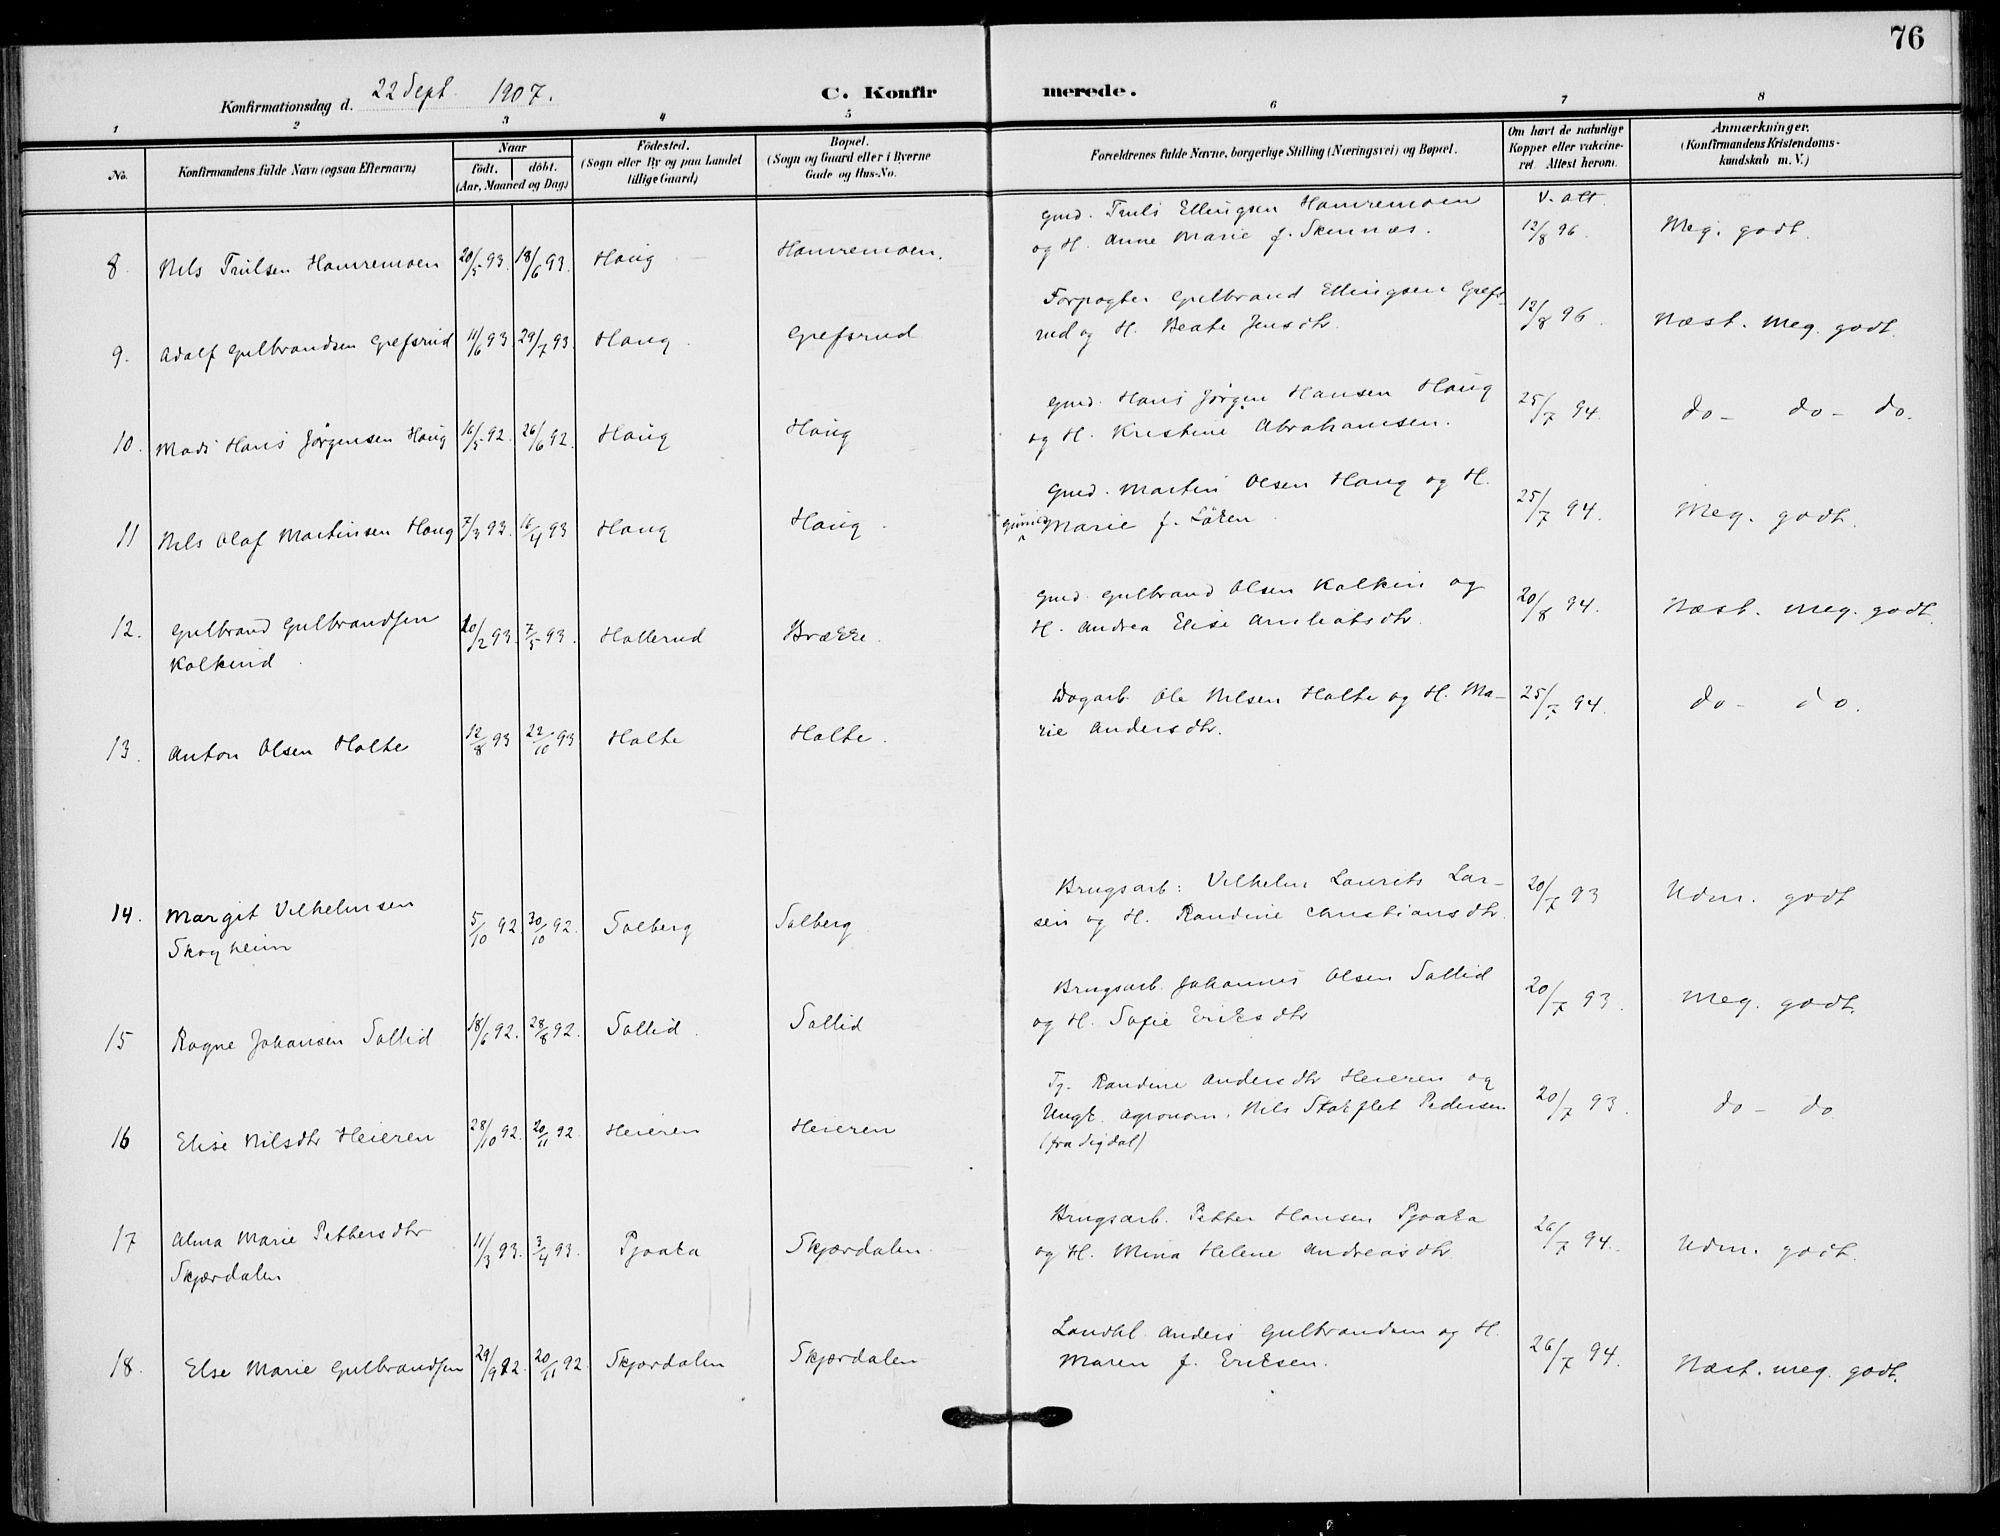 76
Konfirmationsdag d. 22 Sept. 1907.
C. Konfirmerede.
1 2 3 4 5 6 7 8
No.
Konfirmandens fulde Navn (ogsaa Efternavn)
Naar
født. døbt.
(Aar, Maaned og Dag)
Födested.
(Sogn eller By og paa Landet
tillige Gaard)
Bopæl.
(Sogn og Gaard eller i Byerne
Gade og Hus-No.
Forældrenes fulde Navne, borgerlige Stilling (Næringsvei) og Bopæl.
Om havt de naturlige
Kopper eller vakcine-
ret. Attest herom.
Anmærkninger.
(Konfirmandens Kristendoms-
kundskab m. V.)
8 Nils Trulsen Hamremoen 20/5 93. 18/6 93. Haug Hamremoen.
Gmd. Truls Ellingsen Hamremoen
og H. Anne Marie f. Skennæs.
V. att.
12/8 96
Meg. godt.
9. Adolf Gulbrandsen Grefsrud 11/6 93 29/7 93 Haug Grefsrud
Forpagter Gulbrand Ellingsen Grefs-
rud og H. Beate Jensdtr.
12/8 96.
Næst. meg. godt.
10. Mads Hans Jørgensen Haug 16/5 92. 26/6 92. Haug Haug
Gmd. Hans Jørgen Hansen Haug
og H. Kristine Abrahamsen.
25/7 94.
do - do - do.
11 Nils Olaf Martinsen Haug 7/3 93. 16/4 93 Haug Haug.
Gmd. Martin Olsen Haug og H.
Marie f. Løken
25/7 94.
Meg. godt.
12. Gulbrand Gulbrandsen
Kolkind
20/2 93. 7/5 93. Hallerud Brække.
Gmd. Gulbrand Olsen Kolkin og
H. Andrea Elise
20/8 94.
Næst. meg. godt.
13. Anton Olsen Holte 12/8 93 22/10 93 Holte Holte.
Dagarb. Ole Nilsen Holte og H. Ma-
rie Andersdtr.
25/7 94.
do - do.
14. Margit Vilhelmsen
Skogheim
5/10 92. 30/10 92. Solberg Solberg
Brugsarb: Vilhelm Laurits Lar-
sen og H. Randine Christiansdtr.
20/7 93
Udm. godt
15 Ragne Johansen Sollid 18/6 92. 28/8 92. Sollid. Sollid
Brugsarb. Johannes Olsen Sollid
og H. Sofie Eriksdtr
20/7 93.
Meg. godt.
16 Elise Nilsdtr Heieren 28/10 92. 20/11 92 Heieren Heieren
Tj. Randine Andersdtr Heieren og
Ungk. agronom. Nils Stakflet Pedersen
(fra Sigdal)
20/7 93.
do - do
17 Alma Marie Pettersdtr
Skjærdalen
11/3 93. 3/4 93. Pjaaka Skjærdalen.
Brugsarb. Petter Hansen Pjaaka
og H. Mina Helene Andreasdtr.
26/7 94.
Udm. godt.
18. Else Marie Gulbrandsen 29/9 92. 20/11 92. Skjærdalen Skjærdalen
Landhl. Anders Gulbrandsen og H.
Maren f. Eriksen.
26/7 94.
Næst. meg. godt.